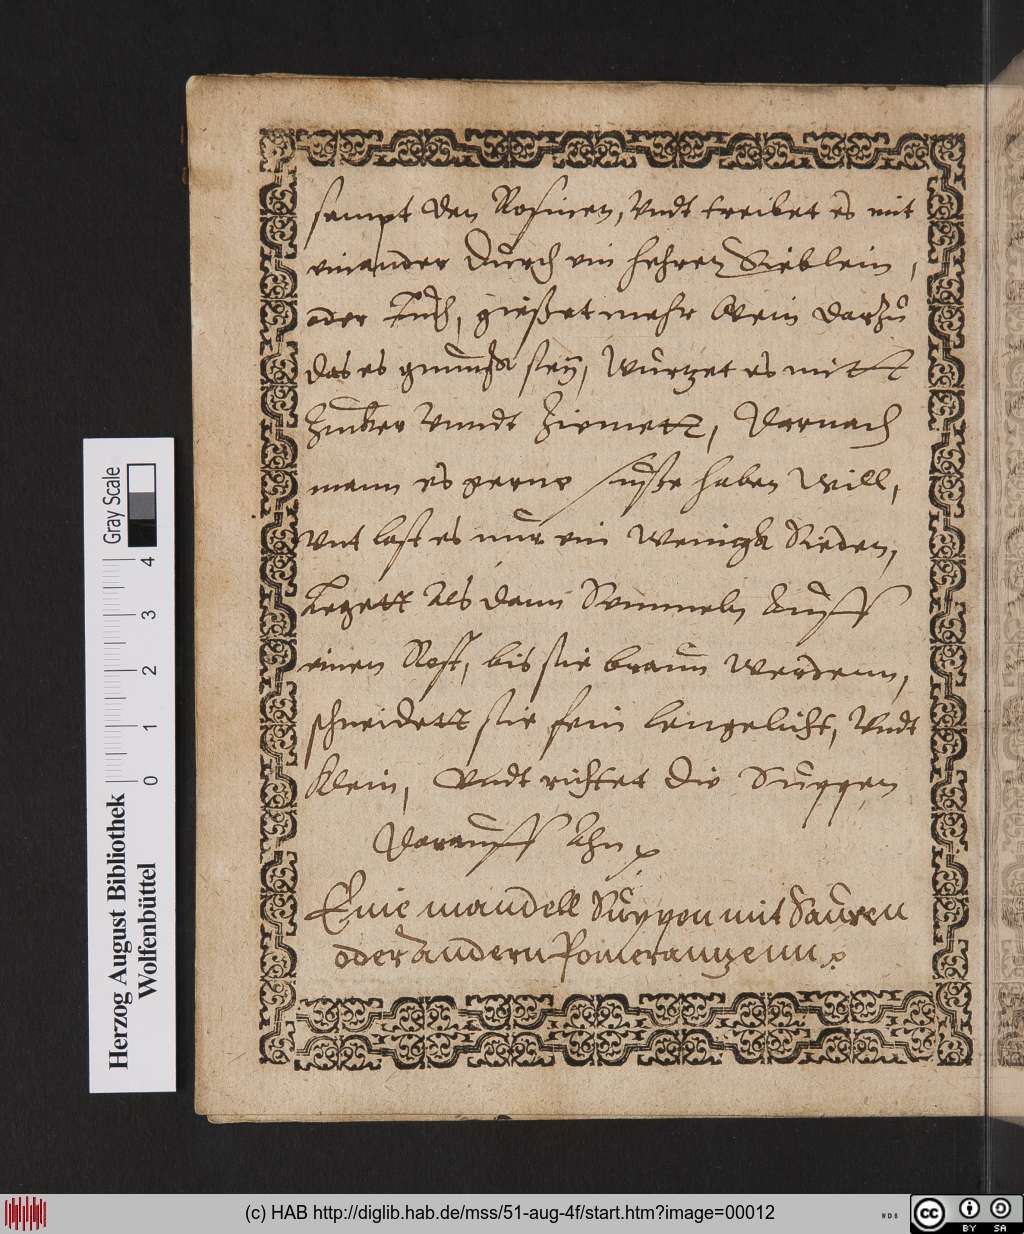 sampt den Rosinen, Vndt treibet es mit
einander durch ein hehren Sieblein,
oder Tuch, gießet mehr Wein darzu
das es gnungk sey, Wurtzet es mitt
Zucker Vundt Zimett, Darnach
mann es gerne suße haben will,
vnt last es nur ein wenigk Sieden,
Legett Als dann Semmeln Auff
einen Rost, bis sie braun werdenn,
schneidett sie fein lengelicht, Vndt
Klein, Vndt richtet die Suppen
Darauff Ahn
Eine mandell Suppen mit Sauren
oder andern Pomerantzenn
Gray Scale
0 1 2 3 4
Herzog August Bibliothek
Wolfenbüttel
(c) HAB http://diglib.hab.de/mss/51-aug-4f/start.htm?image=00012
cc BY SA